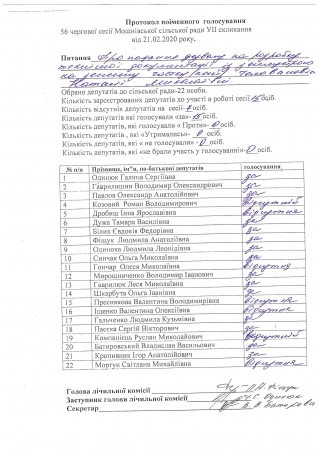 Протокол поіменного голосування
56 чергової сесії Мошнівської сільської ради УІІ скликання
від 21.02.2020 року.
Питання Про надання дозволу на розробку
технічної документації із
на земельну частку (пай)
Наталії Миколаївні
Обрано депутатів до сільської ради-22 особи.
Кількість зареєстрованих депутатів до участі в роботі сесії 15 осіб.
Кількість відсутніх депутатів на сесії-7 осіб.
Кількість депутатів, які голосували «за»-15 осіб.
Кількість депутатів, які голосували « Проти»-0 осіб.
Кількість депутатів, які «Утримались»- 0 осіб.
Кількість депутатів, які « не голосували»- 0 осіб.
Кількість депутатів, які «не брали участь у голосуванні»-0 осіб.
№ п/п Прізвище, ім"я, по-батькові депутатів голосування
1 Одинюк Галина Сергіївна за
2 Гаврилишин Володимир Олександрович за
3 Павлов Олександр Анатолійович за
4 Козовий Роман Володимирович Відсутній
5 Дробиш Інна Ярославівна відсутня
6 Дужа Тамара Василівна за
7 Білик Євдокія Федорівна за
8 Фіщук Людмила Анатоліївна за
9 Одинока Людмила Леонідівна за
10 Синчак Ольга Миколаївна за
11 Гончар Олеся Миколаївна Відсутня
12 Мирошниченко Володимир Іванович за
13 Гаврилюк Леся Миколаївна за
14 Шкарбута Ольга Іванівна за
15 Преснякова Валентина Володимирівна відсутня
16 Іщенко Валентина Олексіївна відсутня
17 Гальченко Людмила Кузьмівна за
18 Пасєка Сергій Вікторович за
19 Компанієць Руслан Миколайович Відсутній
20 Батировський Владислав Васильович за
21 Кропивник Ігор Анатолійович за
22 Моргун Світлана Михайлівна Відсутня
Голова лічильної комісії
Заступник голови лічильної комісії
Секретар